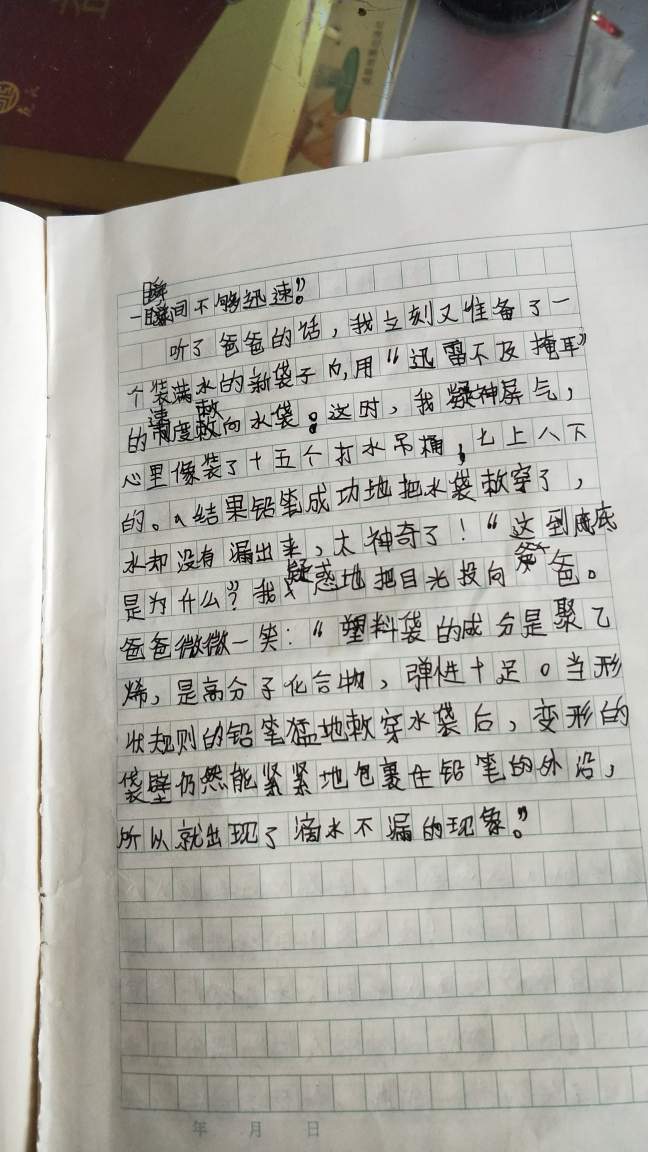 瞬间不够迅速。”
听了爸爸的话，我立刻又准备了一
个装满水的新袋子内，用“迅雷不及掩耳”
的速度刺向水袋。这时，我凝神屏气，
心里像装了十五个打水吊桶，七上八下
的。结果铅笔成功地把水袋刺穿了，
水却没有漏出来，太神奇了！“这到底底
是为什么”？我疑惑地把目光投向爸爸。
爸爸微微一笑：“塑料袋的成分是聚乙
烯，是高分子化合物，弹性十足。当形
状规则的铅笔猛地刺穿水袋后，变形的
袋壁仍然能紧紧地包裹住铅笔的外沿，
所以就出现了滴水不漏的现象。”
年 月 日